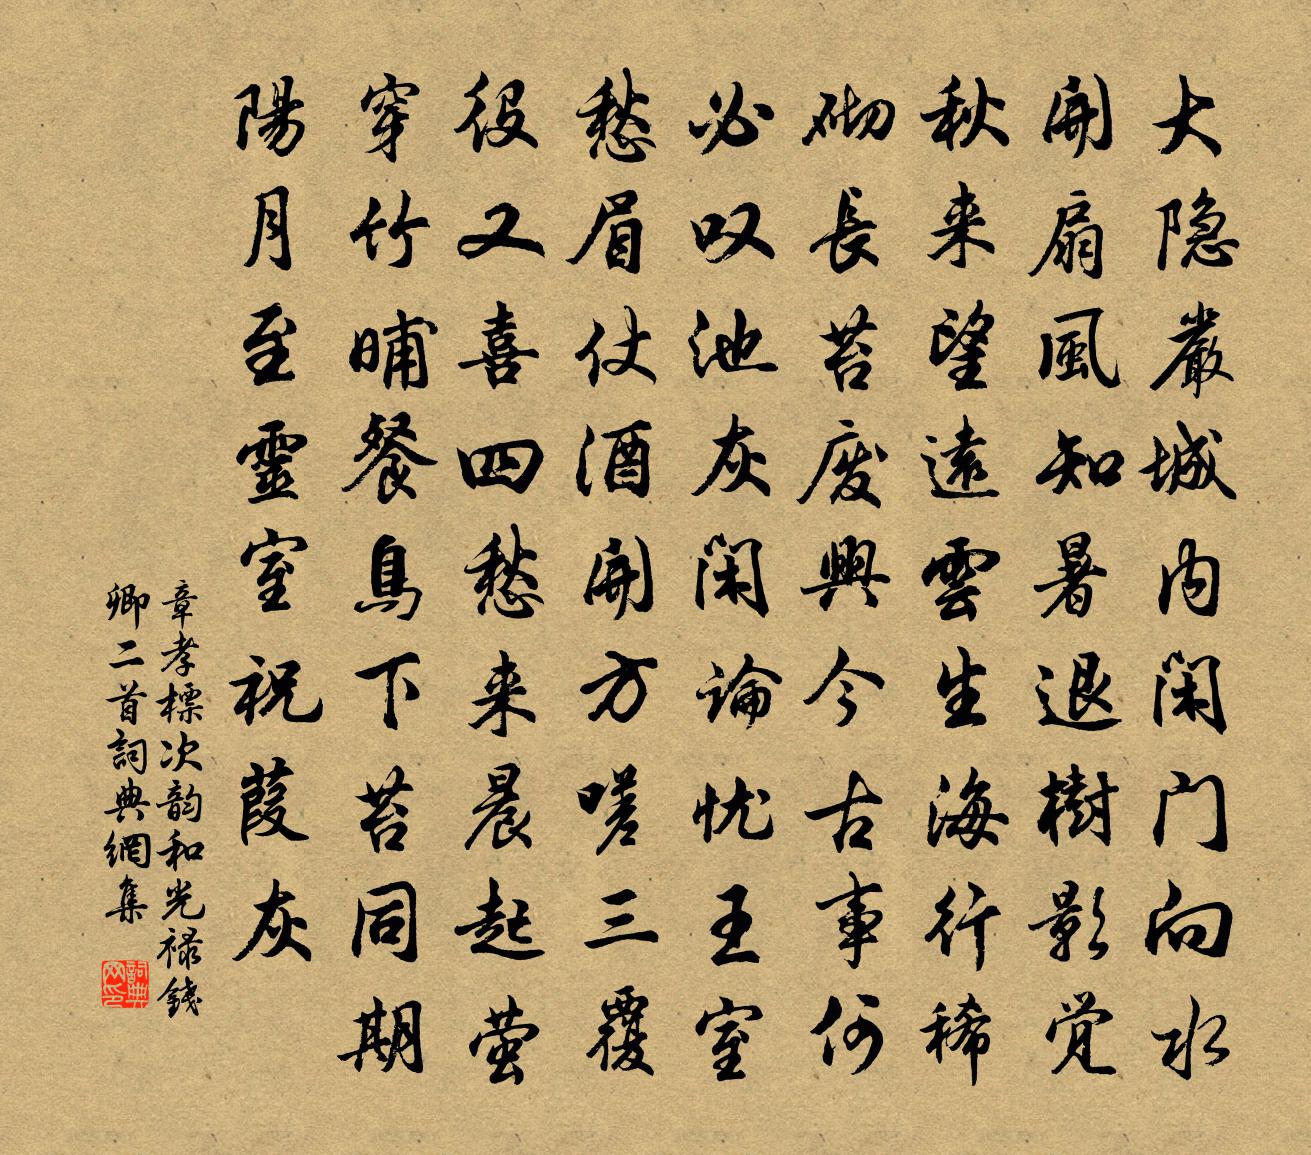 大隐嚴城内闲门向水
開扇風知暑退樹影觉
秋来望遠雲生海行稀
砌長苔废興今古事何
必叹池灰闲論忧王室
愁眉仗酒開方嗟三覆
役又喜四愁来晨起萤
穿竹晡餐鳥下苔同期
陽月至靈室祝葭灰
章孝標次韵和光禄錢
卿二首詞典網集
詞典
网印